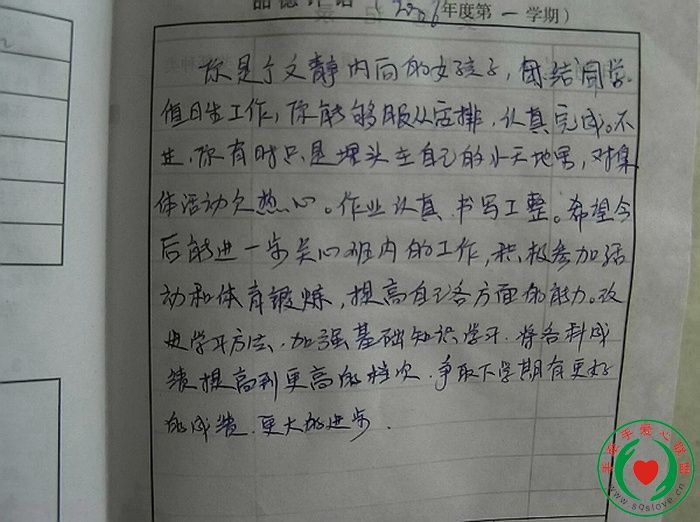 品德评语 (2006年度第一学期)
你是个文静内向的女孩子，团结同学。
值日生工作，你能够服从安排，认真完成。不
过，你有时只是埋头在自己的小天地里，对集
体活动欠热心。作业认真，书写工整。希望今
后能进一步关心班内的工作，积极参加活
动和体育锻炼，提高自己各方面的能力。改
进学习方法，加强基础知识学习，将各科成
绩提高到更高的档次，争取下学期有更好
的成绩，更大的进步。
手牵手爱心联盟
www.sqslove.cn